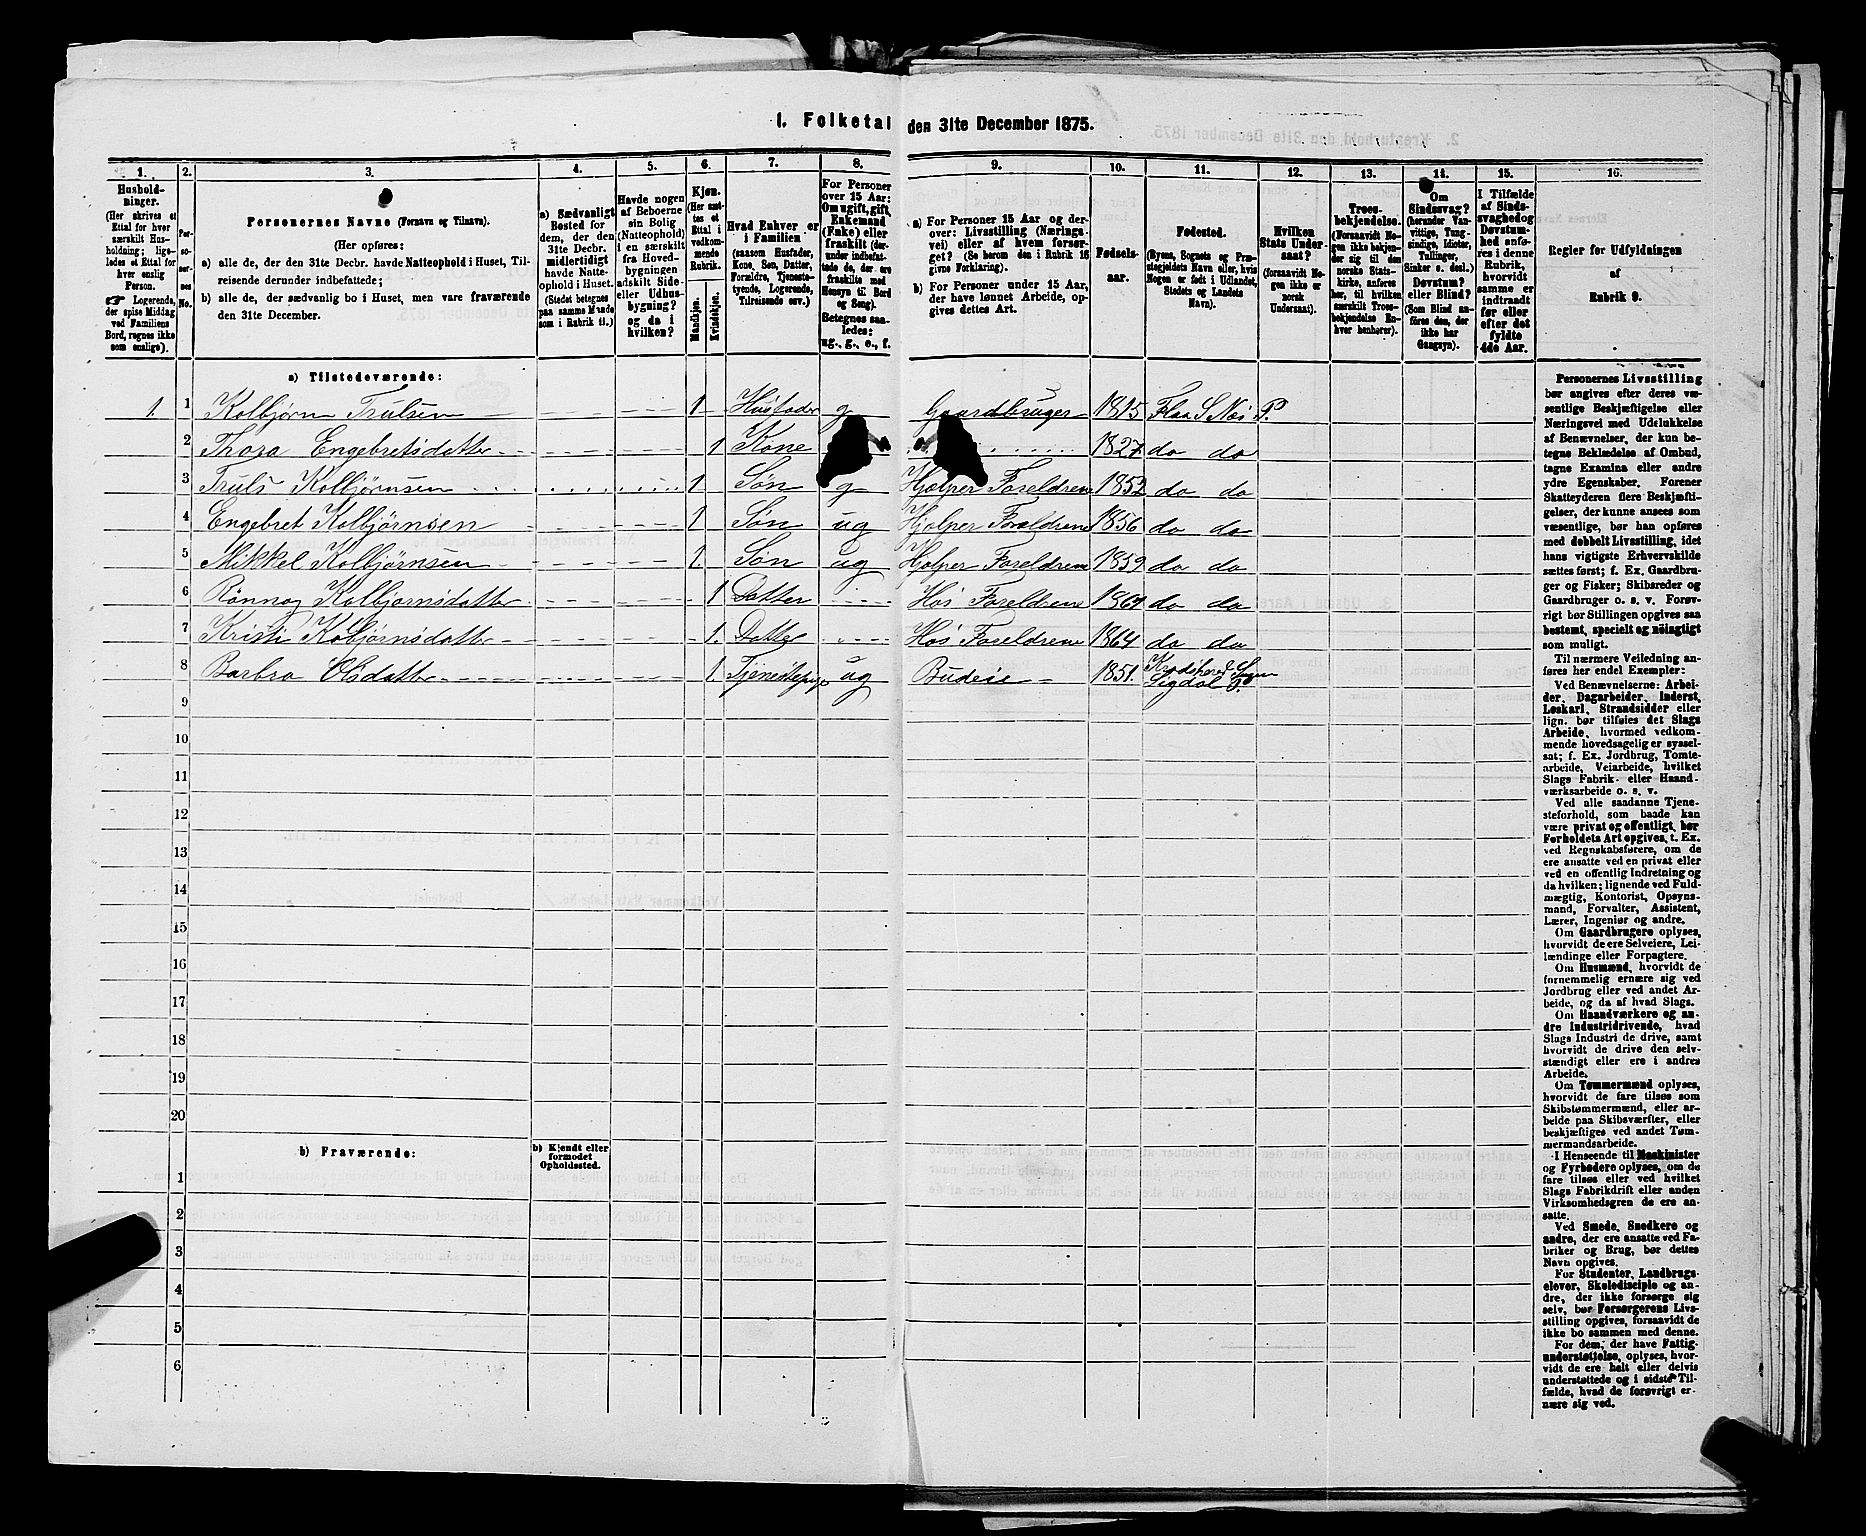 1. Folketal den 31te December 1875.
1. 2. 3. 4. 5. 6. 7. 8. 9. 10. 11. 12. 13. 14. 15. 16.
Husholdninger.
(Her skrives et Ettal for hver særskilt Husholdning; ligeledes et Ettal for hver enslig Person.
Logerende, der spise Middag ved Familiens Bord, regnes ikke som enslige).
Personernes No.
Personernes Navne (Fornavn og Tilnavn).
(Her opføres:
a) alle de, der den 31te Decbr. havde Natteophold i Huset, Tilreisende derunder indbefattede;
b) alle de, der sædvanlig bo i Huset, men vare fraværende den 31te December.
a) Sædvanligt Bosted for dem, der den 31te Decbr. midlertidigt havde Natteophold i Huset. (Stedet betegnes paa samme Maade som i Rubrik 11.)
Havde nogen af Beboerne sin Bolig (Natteophold) i en særskilt fra Hovedbygningen adskilt Side- eller Udhusbygning? og da i hvilken?
Kjøn. (Her sættes et Ettal i vedkommende Rubrik.
Mandkjøn. Kvindekjøn.
Hvad Enhver er i Familien (saasom Husfader, Kone, Søn, Datter, Forældre, Tjenestetyende, Logerende, Tilreisende osv.)
For Personer over 15 Aar: Om ugift, gift, Enkemand (Enke) eller fraskilt (derunder indbefattede de, der ere fraskilte med Hensyn til Bord og Seng). Betegnes saaledes: ug., g., e., f.
a) For Personer 15 Aar og derover: Livsstilling (Næringsvei) eller af hvem forsørget? (Se herom den i Rubrik 16 givne Forklaring).
b) For Personer under 15 Aar, der have lønnet Arbeide, opgives dettes Art.
Fødselsaar.
Fødested.
(Byens, Sognets og Præstegjeldets Navn eller, hvis Nogen er født i Udlandet, Stedets og Landets Navn).
Hvilken Stats Undersaat? (forsaavidt Nogen ikke er norsk Undersaat).
Troesbekjendelse. (Forsaavidt Nogen ikke bekjender sig til den norske Statskirke, anføres her, til hvilken særskilt Troesbekjendelse Enhver henhører).
Om Sindssvag? (herunder Vanvittige, Tungsindige, Idioter, Tullinger, Sinker o. desl.) Døvstum? eller Blind? (Som Blind anføres den, der ikke har Gangsyn).
I Tilfælde af Sindssvaghed og Døvstumhed anføres i denne Rubrik, hvorvidt samme er indtraadt før eller efter det fyldte 4de Aar.
Regler for Udfyldningen af Rubrik 9.
a) Tilstedeværende:
1. 1 Kolbjørn Trulsen 1 Husfader g Gaardbruger 1815 Flaa S Næs P.
2 Thora Engebretsdatter 1 Kone 1827 do do
3 Truls Kolbjørnsen 1 Søn g Hjælper Foreldrene 1852 do do
4 Engebret Kolbjørnsen 1 Søn ug Hjælper Foreldrene 1856 do do
5 Mikkel Kolbjørnsen 1. Søn ug Hjælper Foreldrene 1859 do do
6 Rønnog Kolbjørnsdatter 1 Datter Hos Foreldrene do do
7 Kristi Kolbjørnsdatter 1. Datter Hos Foreldrene 1864 do do
8 Barbro Olsdatter 1 Tjenestepige ug Budeie 1851. Krødsherred Sogn Sigdal P.
9
10
11
12
13
14
15
16
17
18
19
20
b) Fraværende:
b) Kjendt eller formodet Opholdssted.
1
2
3
4
5
6
Personernes Livsstilling
bør angives efter deres væ-
sentlige Beskjæftigelse eller
Næringsvei med Udelukkelse
af Benævnelser, der kun be-
tegne Beklædelse af Ombud,
tagne Examina eller andre
ydre Egenskaber. Forener
Skatteyderen flere Beskjæfti-
gelser, der kunne ansees som
væsentlige, bør han opføres
med dobbelt Livsstilling, idet
hans vigtigste Erhvervskilde
sættes først; f. Ex. Gaardbru-
ger og Fisker; Skibsreder og
Gaardbruger o. s. v. Forøv-
rigt bør Stillingen opgives saa
bestemt, specielt og nøiagtigt
som muligt.
Til nærmere Veiledning an-
føres her endel Exempler:
Ved Benævnelserne: Arbei-
der, Dagarbeider, Inderst,
Løskarl, Strandsidder eller
lign. bør tilføies det Slags
Arbeide, hvormed vedkom-
mende hovedsagelig er syssel-
sat; f. Ex. Jordbrug, Tomte-
arbeide, Veiarbeide, hvilket
Slags Fabrik- eller Haand-
værksarbeide o. s. v.
Ved alle saadanne Tjene-
steforhold, som baade kan
være privat og offentligt, bør
Forholdets Art opgives, t. Ex.
ved Regnskabsførere, om de
ere ansatte ved en privat eller
ved en offentlig Indretning og
da hvilken; lignende ved Fuld-
mægtig, Kontorist, Opsyns-
mand, Forvalter, Assistent,
Lærer, Ingeniør og andre.
Om Gaardbrugere oplyses,
hvorvidt de ere Selveiere, Lei-
lændinge eller Forpagtere.
Om Husmænd, hvorvidt de
fornemmelig ernære sig ved
Jordbrug eller ved andet Ar-
beide, og da af hvad Slags.
Om Haandværkere og an-
dre Industridrivende, hvad
Slags Industri de drive, samt
hvorvidt de drive den selv-
stændigt eller ere i andres
Arbeide.
Om Tømmermænd oplyses,
hvorvidt de fare tilsøs som
Skibstømmermænd, eller ar-
beide paa Skibsværfter, eller
beskjæftiges ved andet Tøm-
mermandsarbeide.
I Henseende til Maskinister
og Fyrbødere oplyses, om de
fare tilsøs eller ved hvilket
Slags Fabrikdrift eller anden
Virksomhedsgren de ere an-
satte.
Ved Smede, Snedkere og
andre, der ere ansatte ved Fa-
briker og Brug, bør dettes
Navn opgives.
For Studenter, Landbrugs-
elever, Skoledisciple og an-
dre, der ikke forsørge sig
selv, bør Forsørgerens Livs-
stilling opgives, forsaavidt de
ikke bo sammen med denne.
For dem, der have Fattig-
understøttelse, oplyses, hvor-
vidt de ere helt eller delvis
understøttede og i sidste Til-
fælde, hvad de forøvrigt er-
nære sig ved.